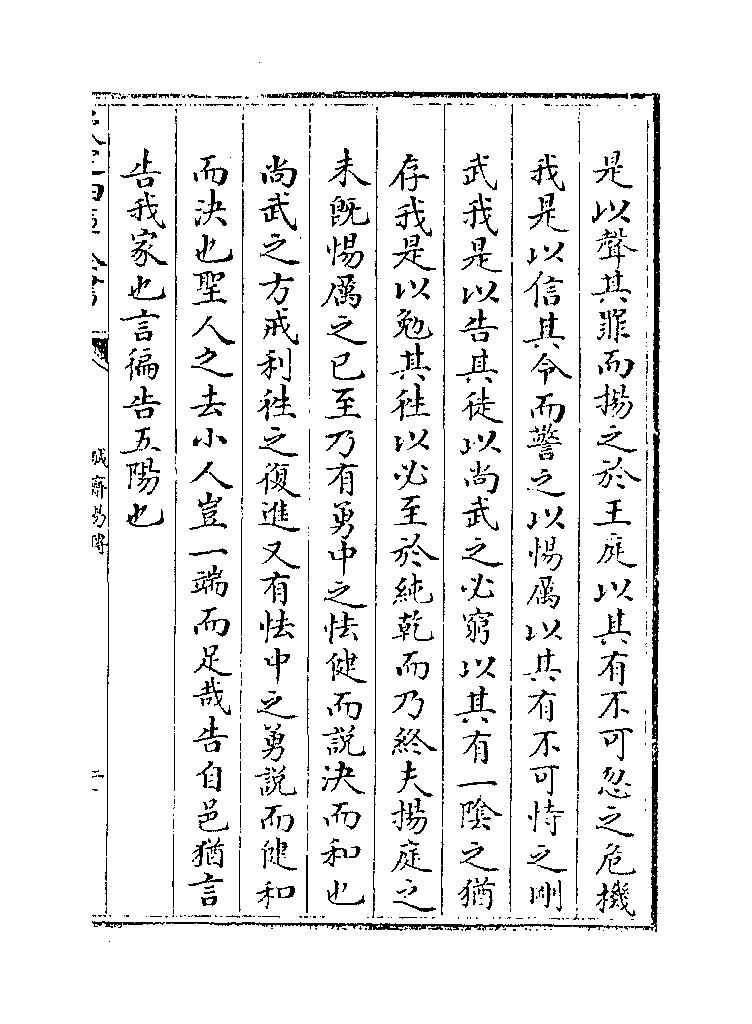 是以聲其罪而揚之於王庭以其有不可忽之危機
我是以信其令而警之以惕厲以其有不可恃之剛
武我是以告其徒以尚武之必窮以其有一陰之猶
存我是以勉其往以必至於純乾而乃終夫揚庭之
未既惕厲之已至乃有勇中之怯健而說決而和也
尚武之方戒利往之復進又有怯中之勇說而健和
而決也聖人之去小人豈一端而足哉告自邑猶言
告我家也言徧告五陽也
誠齋易傳